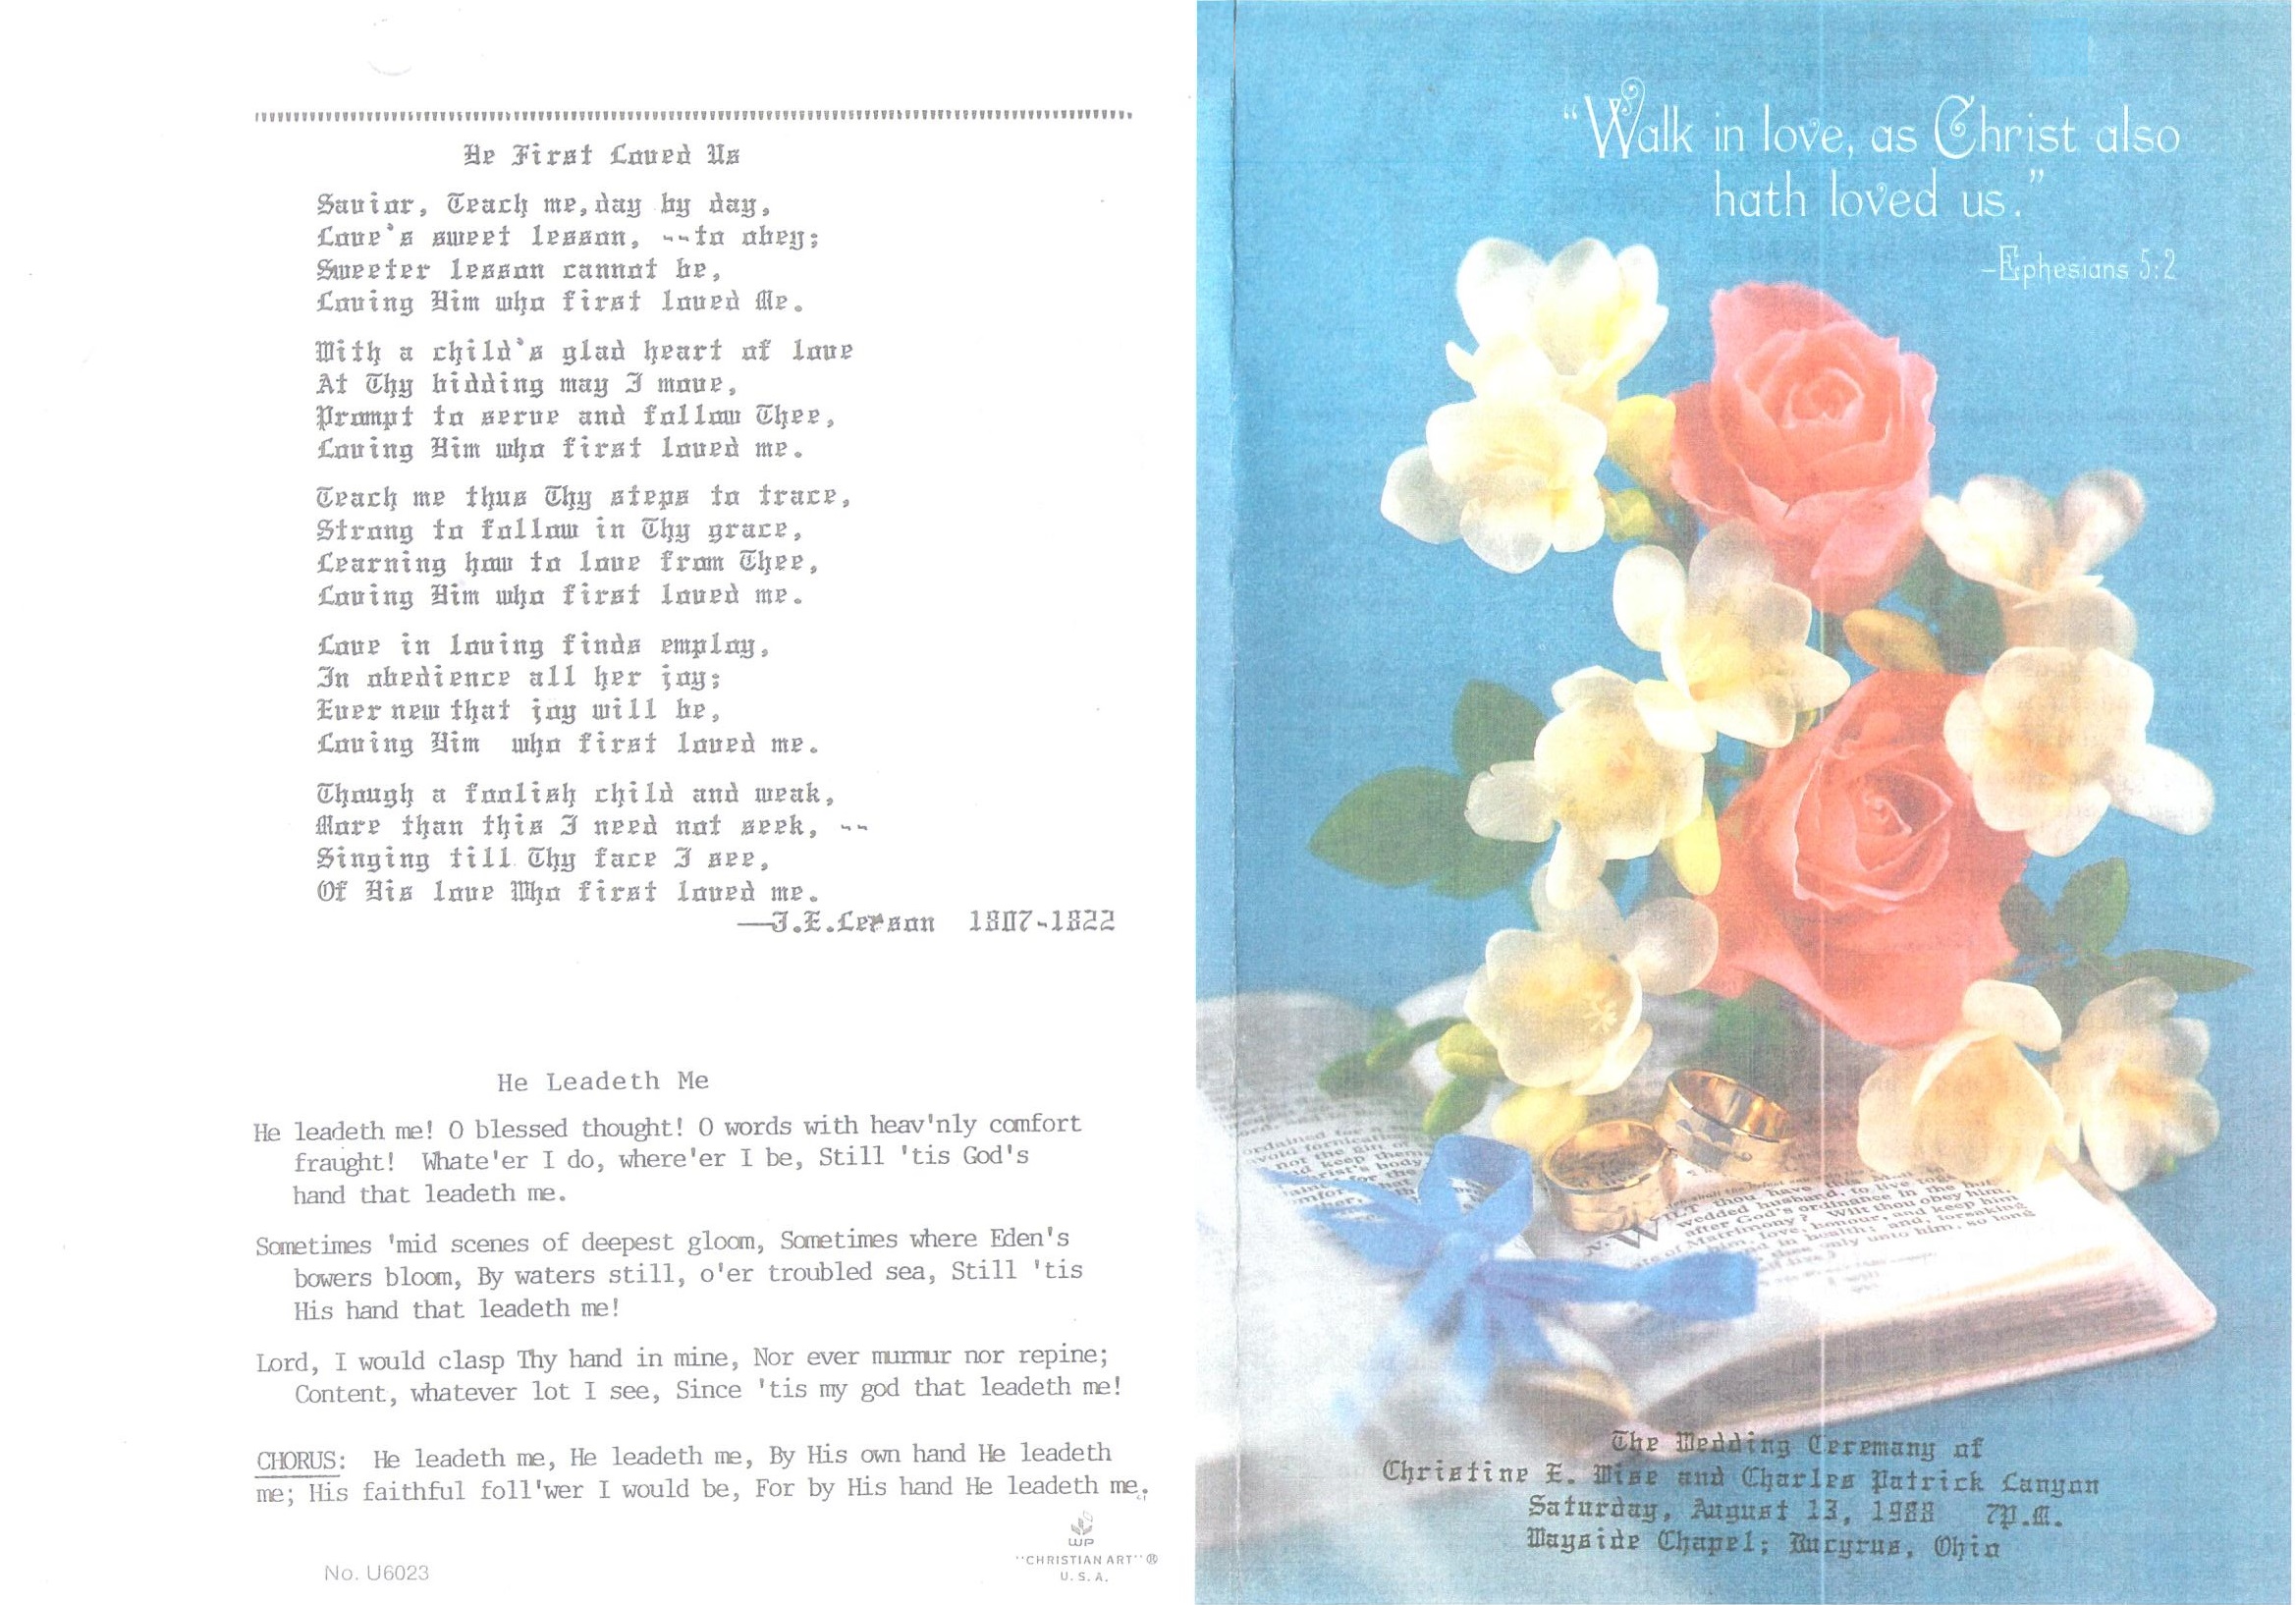 He First Loved Us
Savior, Teach me,day by day,
Love's sweet lesson, --to obey;
Sweeter lesson cannot be,
Loving Him who first loved Me.
With a child's glad heart of love
At Thy bidding may I move,
Prompt to serve and follow Thee,
Loving Him who first loved me.
Teach me thus Thy steps to trace,
Strong to follow in Thy grace,
Learning how to love from Thee,
Loving Him who first loved me.
Love in loving finds employ,
In obedience all her joy;
Ever new that joy will be,
Loving Him who first loved me.
Though a foolish child and weak,
More than this I need not seek, --
Singing till Thy face I see,
Of His love Who first loved me.
—J.E.Lerson 1807-1822
He Leadeth Me
He leadeth me! O blessed thought! O words with heav'nly comfort
fraught! Whate'er I do, where'er I be, Still 'tis God's
hand that leadeth me.
Sometimes 'mid scenes of deepest gloom, Sometimes where Eden's
bowers bloom, By waters still, o'er troubled sea, Still 'tis
His hand that leadeth me!
Lord, I would clasp Thy hand in mine, Nor ever murmur nor repine;
Content, whatever lot I see, Since 'tis my god that leadeth me!
CHORUS: He leadeth me, He leadeth me, By His own hand He leadeth
me; His faithful foll'wer I would be, For by His hand He leadeth me.
WP
"CHRISTIAN ART" ®
U.S.A.
No. U6023
"Walk in love, as Christ also
hath loved us."
—Ephesians 5:2
ordained for a
avoid fornication
not the gift
and keep them
Christ's body
for the
that
WILT thou have this
wedded husband, to live
after God's ordinance in the
of Matrimony? Wilt thou obey him,
him, love, honour, and keep him
and in health; and, forsaking
thee only unto him, so long
live?
I will
The Wedding Ceremony of
Christine E. Wise and Charles Patrick Canyon
Saturday, August 13, 1988 7P.M.
Wayside Chapel; Bucyrus, Ohio